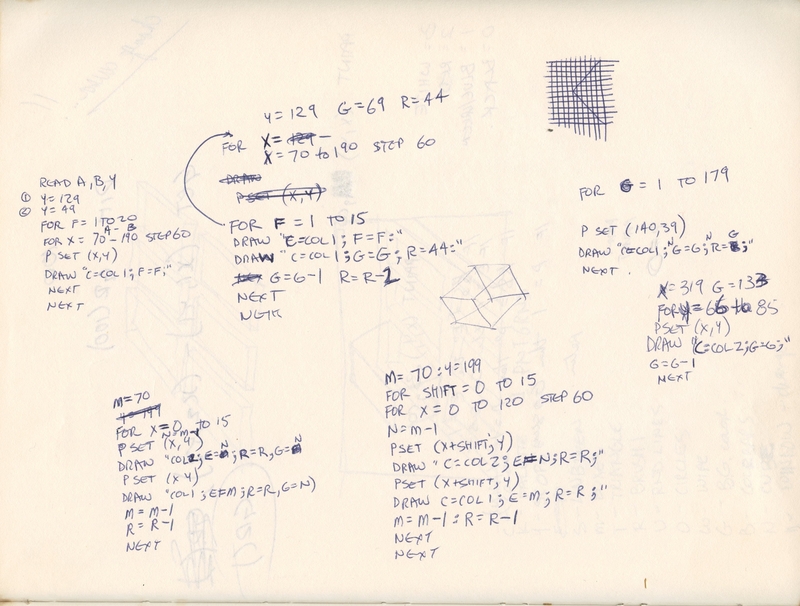 READ A, B, Y
① Y=129
② Y=49
FOR F = 1 TO 20
A - B
FOR X = 70 - 190 STEP 60
PSET (X,Y)
DRAW "C=COL1; F=F;"
NEXT
NEXT
Y=129 G=69 R=44
FOR X = 129 -
X = 70 to 190 STEP 60
DRAW
PSET (X,Y)
FOR F = 1 TO 15
DRAW "E=COL1; F=F;"
DRAW "C=COL1; G=G; R=44;"
G=G-1 R=R-1
NEXT
NEXT
FOR G = 1 TO 179
PSET (140,39)
DRAW "C=COL1; G=G; R=G;"
N
NEXT.
X=319 G=133
FOR Y = 66 to 85
PSET (X,Y)
DRAW "C=COL2; G=G;"
G=G-1
NEXT
M=70
Y=199
FOR X=0 TO 15
N=M-1
PSET (X,Y)
DRAW "COL2; E=N; R=R, G=N
PSET (X,Y)
DRAW "COL1; E=M; R=R, G=N)
M=M-1
R=R-1
NEXT
M=70 : Y=199
FOR SHIFT=0 TO 15
FOR X=0 TO 120 STEP 60
N=M-1
PSET (X+SHIFT, Y)
DRAW "C=COL2; E=N; R=R;"
PSET (X+SHIFT, Y)
DRAW C=COL1; E=M; R=R;"
M=M-1 : R=R-1
NEXT
NEXT